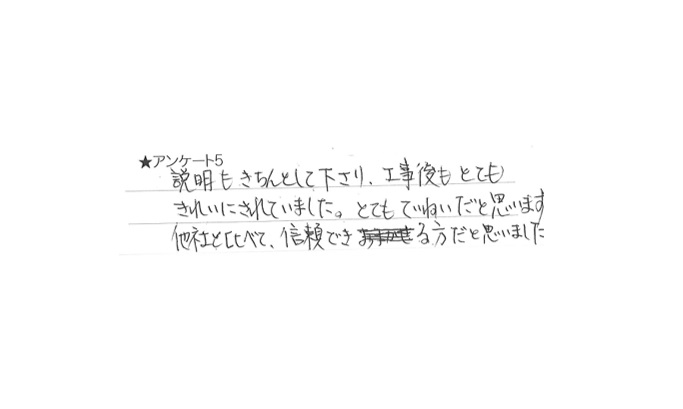 ★アンケート5
説明もきちんとして下さり、工事後もとても
きれいにされていました。とてもていねいだと思います
他社と比べて、信頼できる方だと思いました